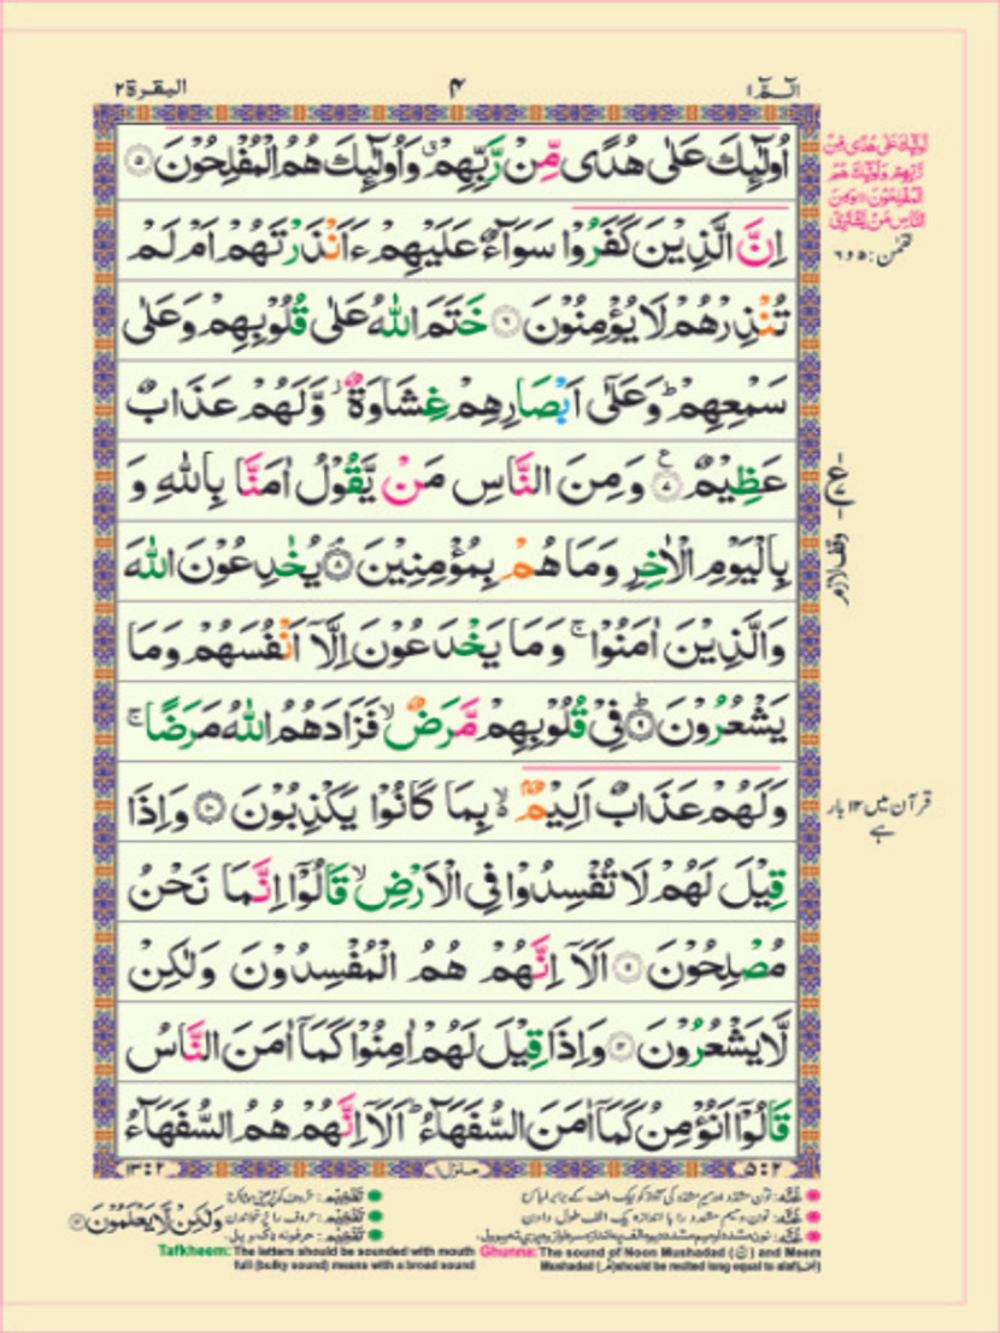 الٓمّٓ ۱
۴
البقرة ۲
اُولٰٓئِكَ عَلٰى هُدًى مِّنْ رَّبِّهِمْ ۙ وَاُولٰٓئِكَ هُمُ الْمُفْلِحُوْنَ ۵
اِنَّ الَّذِيْنَ كَفَرُوْا سَوَآءٌ عَلَيْهِمْ ءَاَنْذَرْتَهُمْ اَمْ لَمْ
تُنْذِرْهُمْ لَا يُؤْمِنُوْنَ ۶ خَتَمَ اللّٰهُ عَلٰى قُلُوْبِهِمْ وَعَلٰى
سَمْعِهِمْ ؕ وَعَلٰٓى اَبْصَارِهِمْ غِشَاوَةٌ ؗ وَّلَهُمْ عَذَابٌ
عَظِيْمٌ ۷ ع وَمِنَ النَّاسِ مَنْ يَّقُوْلُ اٰمَنَّا بِاللّٰهِ وَ
بِالْيَوْمِ الْاٰخِرِ وَمَا هُمْ بِمُؤْمِنِيْنَ ۘ ۸ يُخٰدِعُوْنَ اللّٰهَ
وَالَّذِيْنَ اٰمَنُوْا ۚ وَمَا يَخْدَعُوْنَ اِلَّاۤ اَنْفُسَهُمْ وَمَا
يَشْعُرُوْنَ ؕ ۹ فِيْ قُلُوْبِهِمْ مَّرَضٌ ۙ فَزَادَهُمُ اللّٰهُ مَرَضًا ۚ
وَلَهُمْ عَذَابٌ اَلِيْمٌۢ ۙ بِمَا كَانُوْا يَكْذِبُوْنَ ۱۰ وَاِذَا
قِيْلَ لَهُمْ لَا تُفْسِدُوْا فِى الْاَرْضِ ۙ قَالُوْٓا اِنَّمَا نَحْنُ
مُصْلِحُوْنَ اَلَاۤ اِنَّهُمْ هُمُ الْمُفْسِدُوْنَ وَلٰكِنْ
لَّا يَشْعُرُوْنَ وَاِذَا قِيْلَ لَهُمْ اٰمِنُوْا كَمَاۤ اٰمَنَ النَّاسُ
قَالُوْٓا اَنُؤْمِنُ كَمَاۤ اٰمَنَ السُّفَهَآءُ ؕ اَلَاۤ اِنَّهُمْ هُمُ السُّفَهَآءُ
۵:۲
منزل ۱
۱۳:۲
وَلٰكِنْ لَّا يَعْلَمُوْنَ
اُولٰٓئِكَ عَلٰى هُدًى مِّنْ
رَّبِّهِمْ وَاُولٰٓئِكَ هُمُ
الْمُفْلِحُوْنَ وَمِنَ
النَّاسِ مَنْ
لقمٰن: ۵ و ۶
ع
وقف لازم
قرآن میں ۱۳ بار
ہے
Tafkheem: The letters should be sounded with mouth
full (bulky sound) means with a broad sound
Ghunna: The sound of Noon Mushadad (نّ) and Meem
Mushadad (مّ) should be recited long equal to alaf(الف)